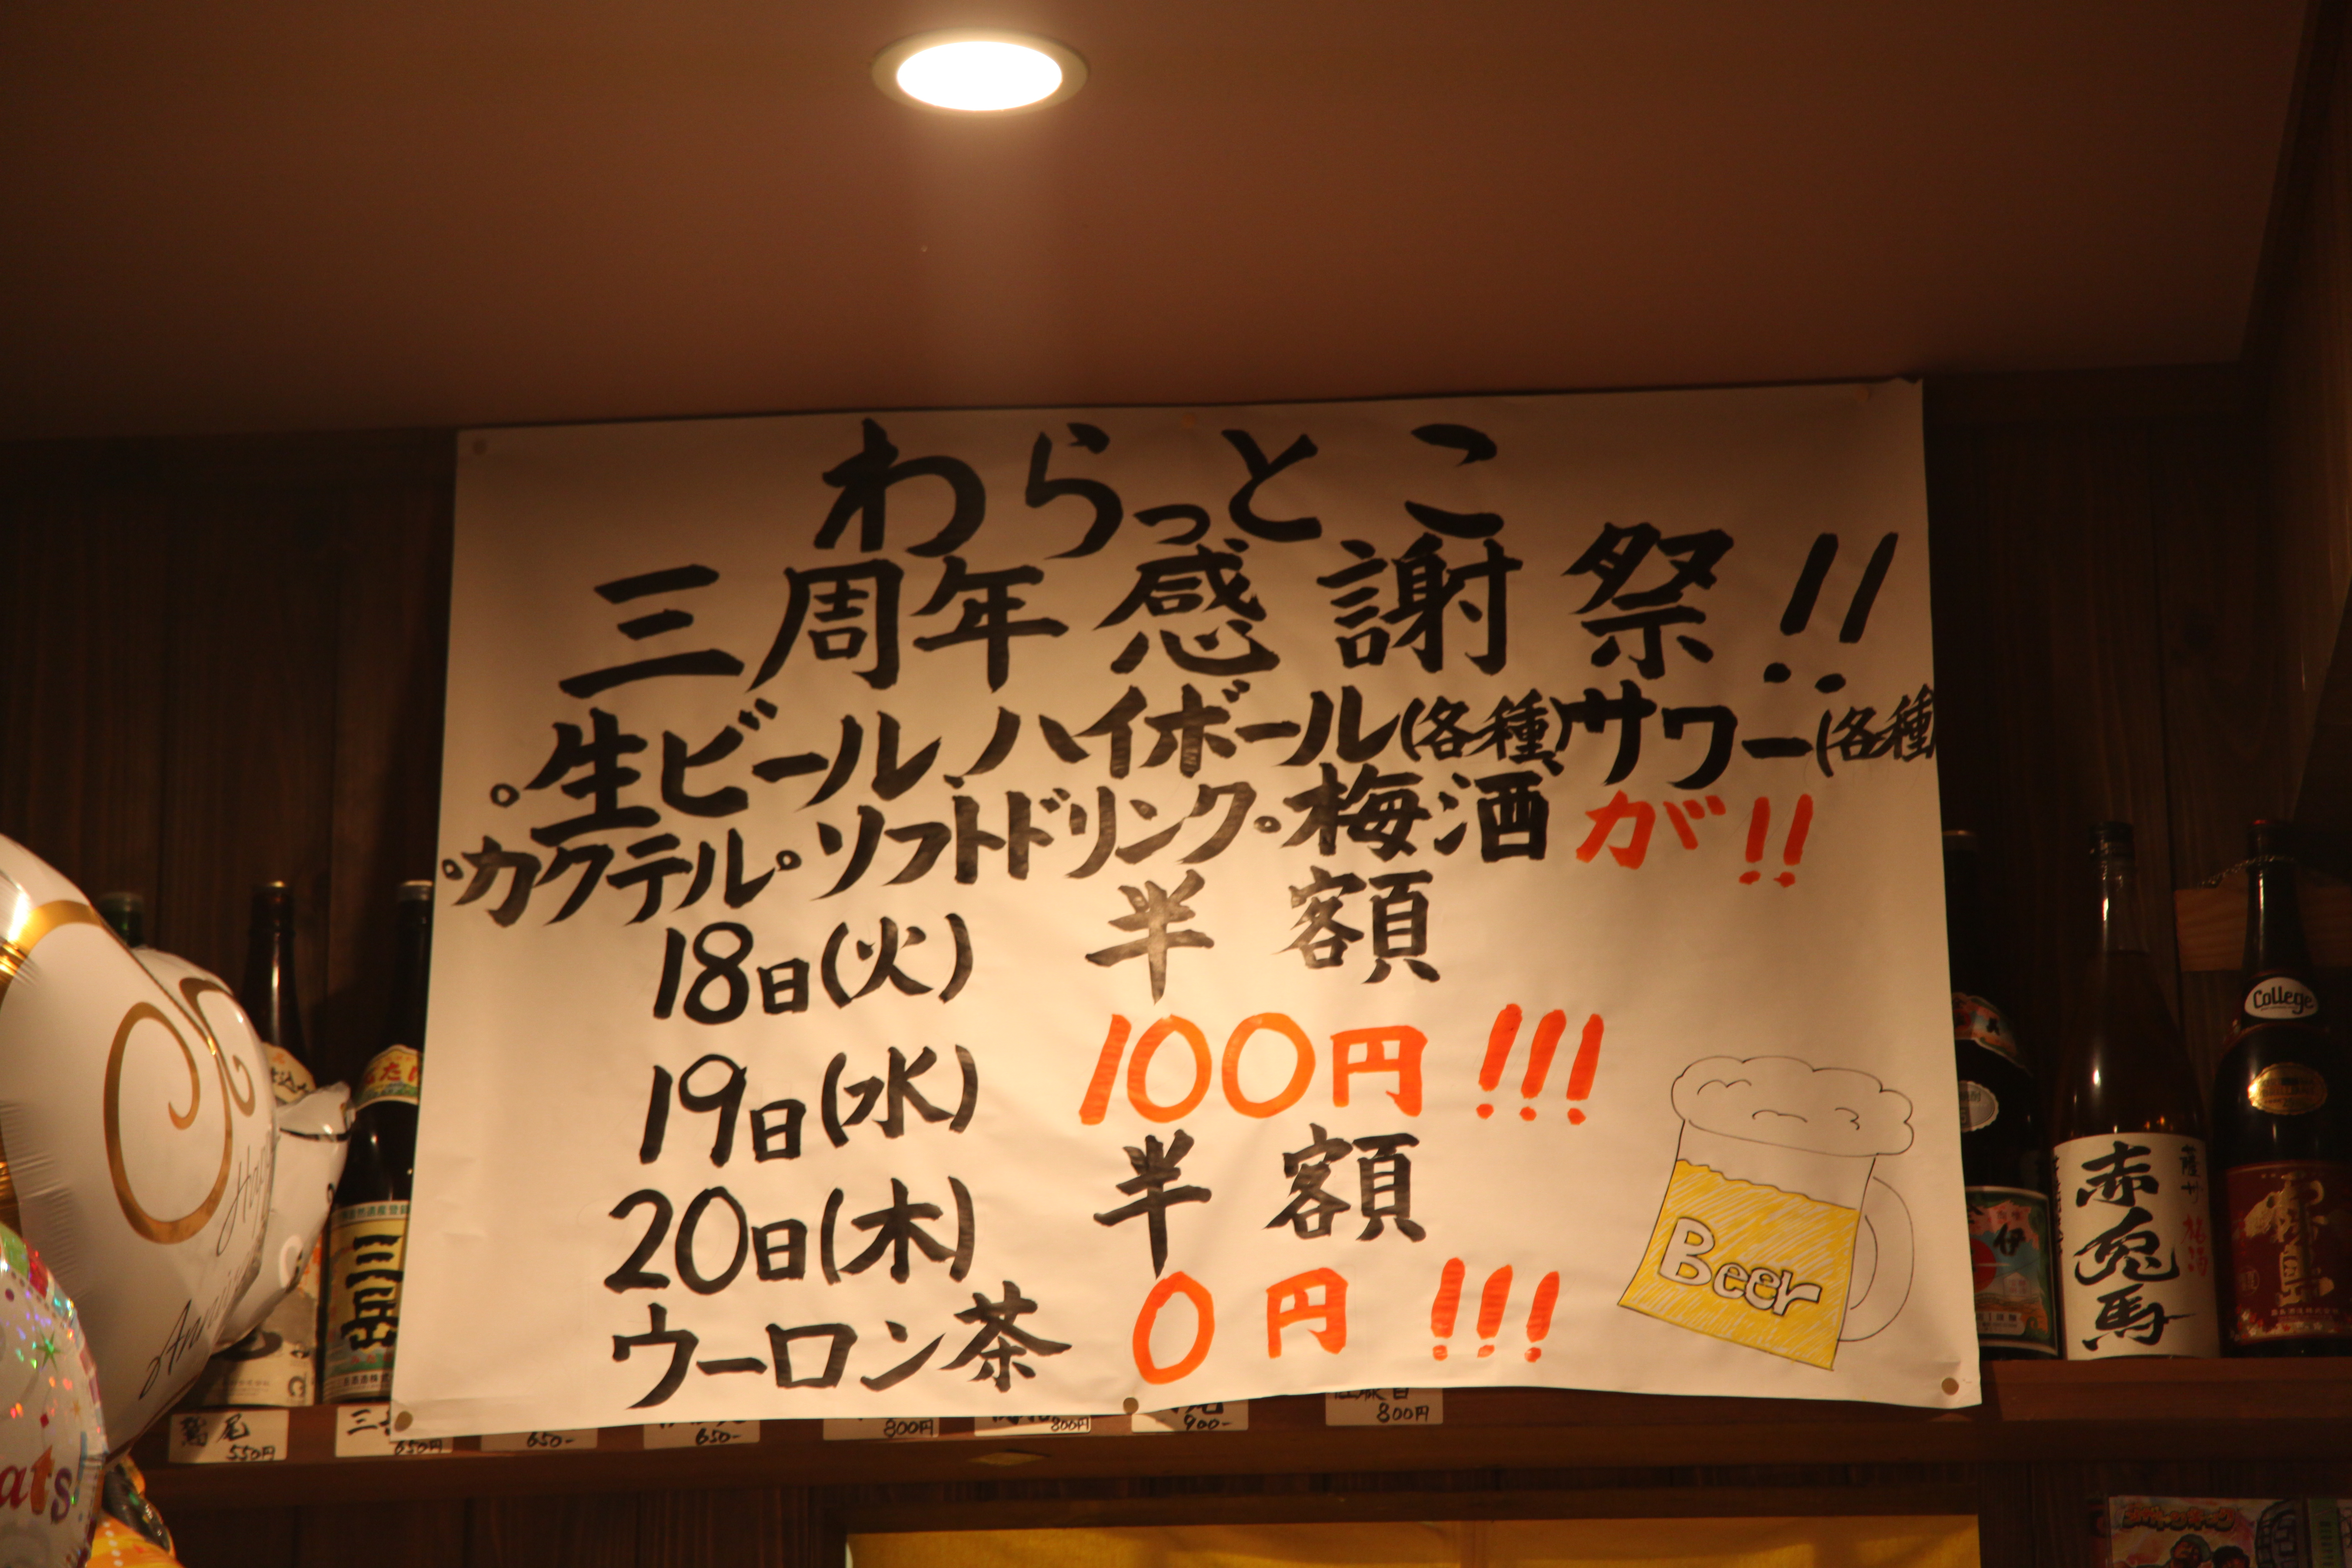 わらっとこ
三周年感謝祭!!
。生ビール、ハイボール(各種)サワー(各種
・カクテル。ソフトドリンク。梅酒が!!
18日(火) 半額
19日(水) 100円!!!
20日(木) 半額
ウーロン茶 0円!!!
Beer
College
赤兎馬
三岳
伊
ats!
鷲尾
550円
三
650円
650-
650-
800円
800円
900-
800円